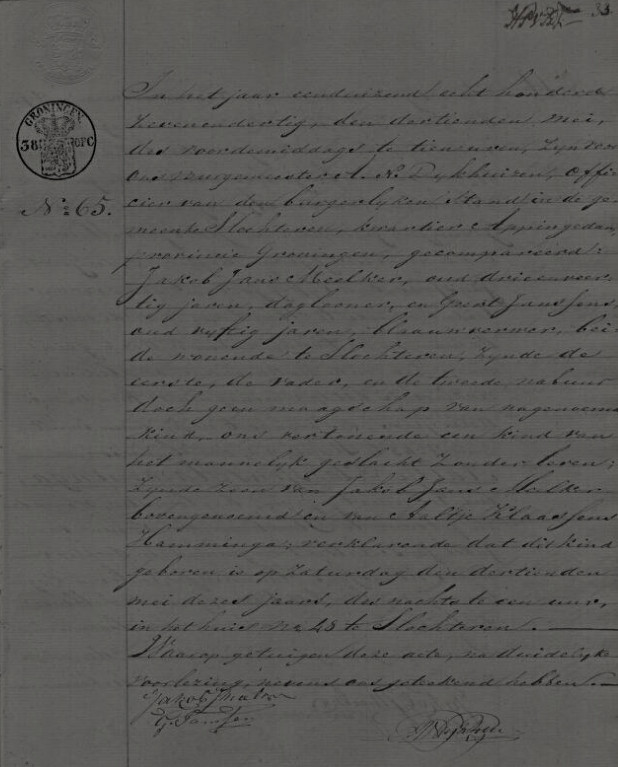 33
GRONINGEN
No. 65.
In het jaar eenduizend acht honderd
zevenendertig, den dertienden mei,
des voordemiddags te tien uren, zyn voor
ons, burgemeester A. N. Dykhuizen, offi
cier van den burgerlyken Stand in de ge
meente Slochteren, kwartier Appingedam,
provincie Groningen, gecompareerd:
Jakob Jans Meelker, oud drieenveer
tig jaren, daglooner, en Geert Janssens,
oud vyftig jaren, blaauwverwer, bei
de wonende te Slochteren, zynde de
eerste, de vader, en de tweede, nabuur
doch geen maagschap van nagenoemd
kind, ons vertonende een kind van
het mannelyk geslacht zonder leven;
zynde zoon van Jakob Jans Meelker
bovengenoemd en van Aaltje Klaassens
Hamminga; verklarende dat dit kind
geboren is op Zaturdag den dertienden
mei dezes jaars, des nachts te een uur,
in het huis No. 43 te Slochteren.
Waarop getuigen deze acte, na duidelyke
voorlezing, nevens ons geteekend hebben.
Jakob
G. Jansen